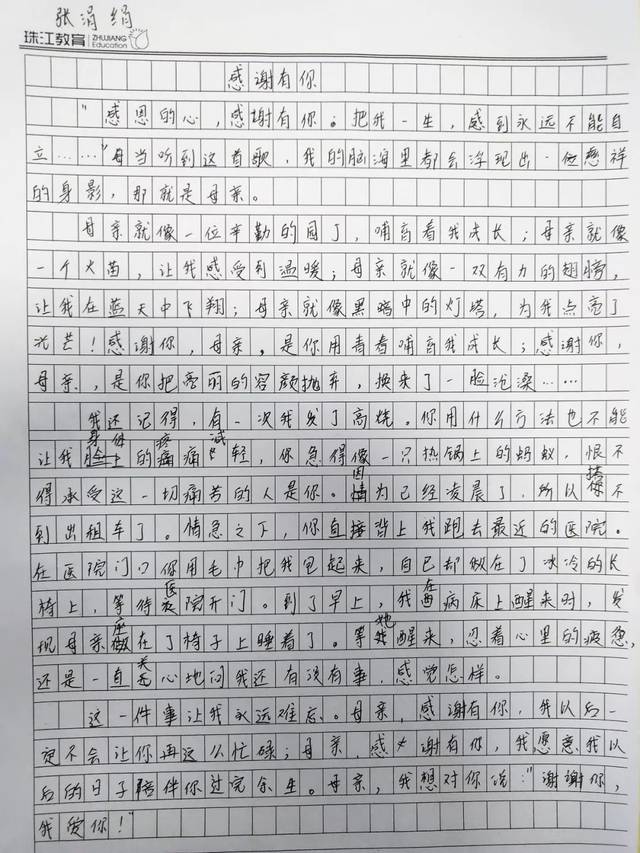 张涓绢
珠江教育 ZHUJIANG Education
感谢有你
"感恩的心，感谢有你。把我一生，感到永远不能自
立……"每当听到这首歌，我的脑海里都会浮现出一位慈祥
的身影，那就是母亲。
母亲就像一位辛勤的园丁，哺育着我成长；母亲就像
一个火苗，让我感受到温暖；母亲就像一双有力的翅膀，
让我在蓝天中飞翔；母亲就像黑暗中的灯塔，为我点亮了
光芒！感谢你，母亲，是你用青春哺育我成长；感谢你，
母亲，是你把亮丽的容颜抛弃，换来了一脸沧桑……
我还记得，有一次我发了高烧。你用什么方法也不能
让我身体的疼痛减轻，你急得像一只热锅上的蚂蚁，恨不
得承受这一切痛苦的人是你。因为已经凌晨了，所以搭不
到出租车了。情急之下，你直接背上我跑去最近的医院。
在医院门口你用毛巾把我包起来，自已却做在了冰冷的长
椅上，等待医院开门。到了早上，我在病床上醒来时，发
现母亲座在了椅子上睡着了。等她醒来，忍着心里的疲惫，
还是一直关心地问我还有没有事，感觉怎样。
这一件事让我永远难忘。母亲，感谢有你，我以后一
定不会让你再这么忙碌；母亲，感谢有你，我愿意我以
后的日子陪伴你过完余生。母亲，我想对你说："谢谢你，
我爱你！"